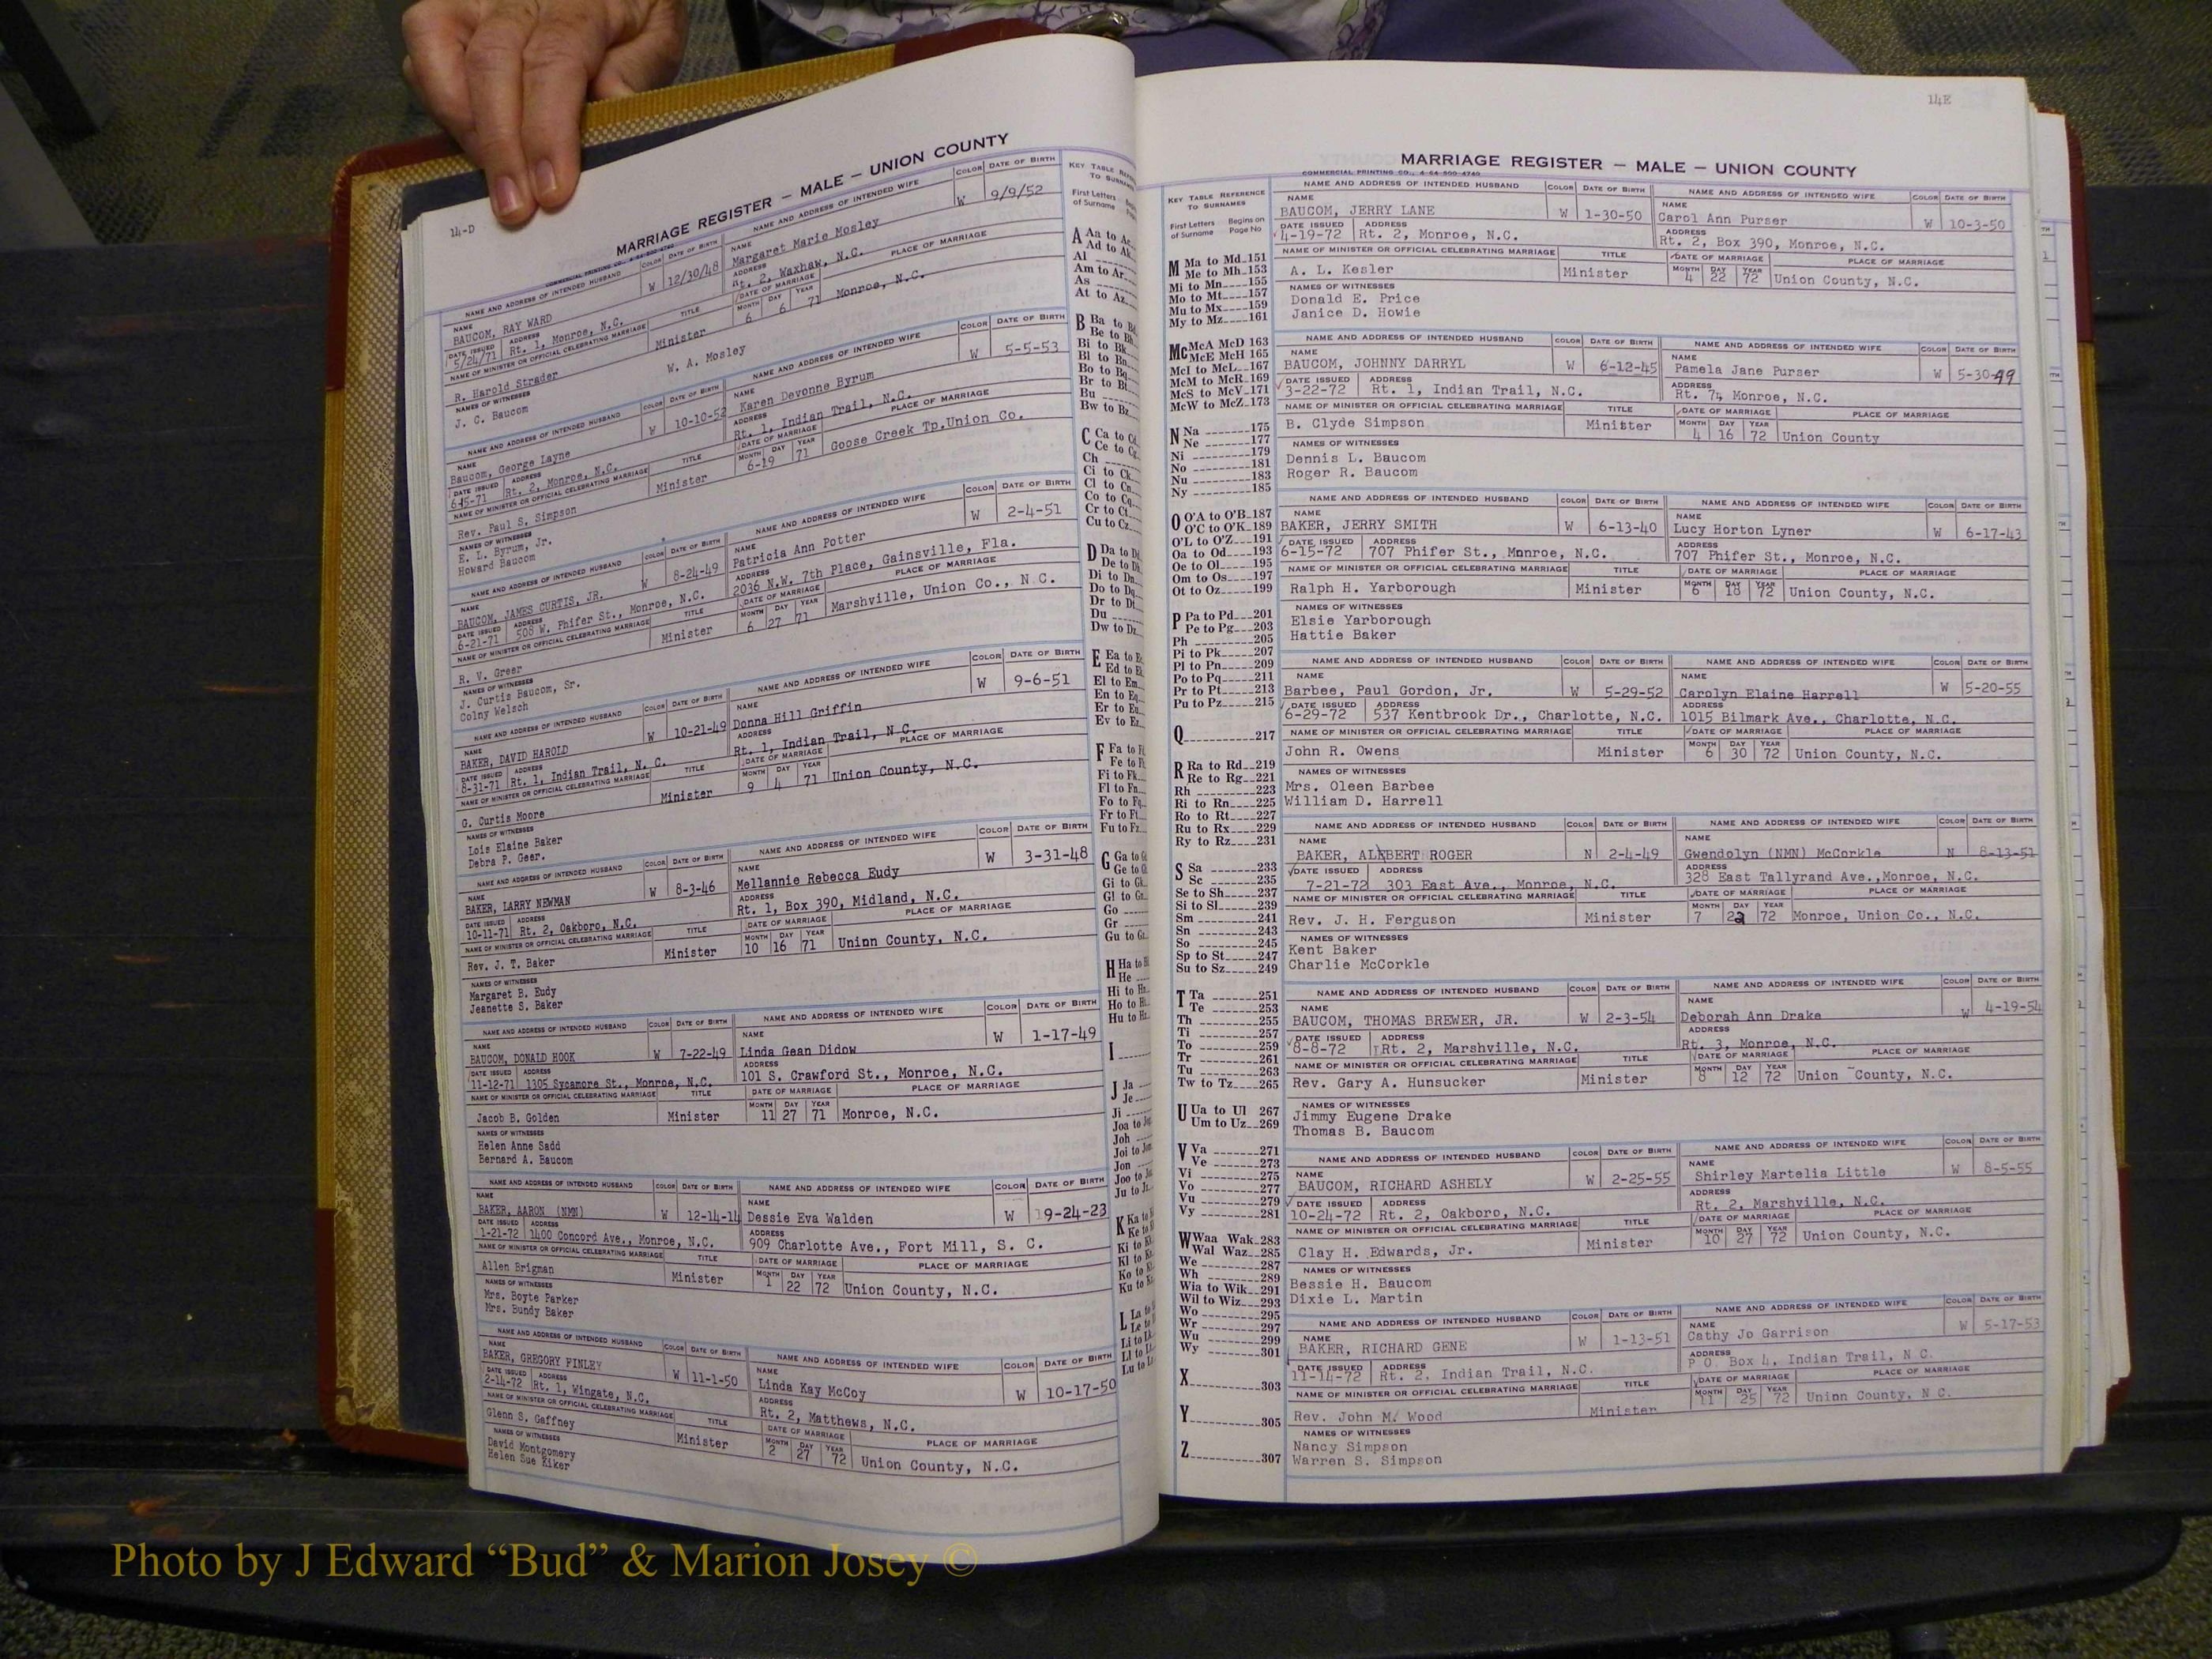 14-D
MARRIAGE REGISTER — MALE — UNION COUNTY
COMMERCIAL PRINTING CO.,
NAME AND ADDRESS OF INTENDED HUSBAND COLOR DATE OF BIRTH NAME AND ADDRESS OF INTENDED WIFE COLOR DATE OF BIRTH
NAME BAUCOM, RAY WARD W 12/30/48 NAME Margaret Marie Mosley W 9/9/52
DATE ISSUED 5/24/71 ADDRESS Rt. 1, Monroe, N.C. ADDRESS Rt. 2, Waxhaw, N.C.
NAME OF MINISTER OR OFFICIAL CELEBRATING MARRIAGE TITLE DATE OF MARRIAGE PLACE OF MARRIAGE
R. Harold Strader Minister MONTH 6 DAY 6 YEAR 71 Monroe, N.C.
NAMES OF WITNESSES
J. C. Baucom W. A. Mosley
NAME AND ADDRESS OF INTENDED HUSBAND COLOR DATE OF BIRTH NAME AND ADDRESS OF INTENDED WIFE COLOR DATE OF BIRTH
NAME Baucom, George Layne W 10-10-52 NAME Karen Devonne Byrum W 5-5-53
DATE ISSUED 6-15-71 ADDRESS Rt. 2, Monroe, N.C. ADDRESS Rt. 1, Indian Trail, N.C.
NAME OF MINISTER OR OFFICIAL CELEBRATING MARRIAGE TITLE DATE OF MARRIAGE PLACE OF MARRIAGE
Rev. Paul S. Simpson Minister MONTH DAY YEAR 6-19 71 Goose Creek Tp,Union Co.
NAMES OF WITNESSES
E. L. Byrum, Jr.
Howard Baucom
NAME AND ADDRESS OF INTENDED HUSBAND COLOR DATE OF BIRTH NAME AND ADDRESS OF INTENDED WIFE COLOR DATE OF BIRTH
NAME BAUCOM, JAMES CURTIS, JR. W 8-24-49 NAME Patricia Ann Potter W 2-4-51
DATE ISSUED 6-21-71 ADDRESS 508 W. Phifer St., Monroe, N.C. ADDRESS 2036 N.W. 7th Place, Gainsville, Fla.
NAME OF MINISTER OR OFFICIAL CELEBRATING MARRIAGE TITLE DATE OF MARRIAGE PLACE OF MARRIAGE
R. V. Greer Minister MONTH 6 DAY 27 YEAR 71 Marshville, Union Co., N.C.
NAMES OF WITNESSES
J. Curtis Baucom, Sr.
Colny Welsch
NAME AND ADDRESS OF INTENDED HUSBAND COLOR DATE OF BIRTH NAME AND ADDRESS OF INTENDED WIFE COLOR DATE OF BIRTH
NAME BAKER, DAVID HAROLD W 10-21-49 NAME Donna Hill Griffin W 9-6-51
DATE ISSUED 8-31-71 ADDRESS Rt. 1, Indian Trail, N. C. ADDRESS Rt. 1, Indian Trail, N C.
NAME OF MINISTER OR OFFICIAL CELEBRATING MARRIAGE TITLE DATE OF MARRIAGE PLACE OF MARRIAGE
G. Curtis Moore Minister MONTH 9 DAY 4 YEAR 71 Union County, N.C.
NAMES OF WITNESSES
Lois Elaine Baker
Debra P. Geer.
NAME AND ADDRESS OF INTENDED HUSBAND COLOR DATE OF BIRTH NAME AND ADDRESS OF INTENDED WIFE COLOR DATE OF BIRTH
NAME BAKER, LARRY NEWMAN W 8-3-46 NAME Mellannie Rebecca Eudy W 3-31-48
DATE ISSUED 10-11-71 ADDRESS Rt. 2, Oakboro, N.C. ADDRESS Rt. 1, Box 390, Midland, N.C.
NAME OF MINISTER OR OFFICIAL CELEBRATING MARRIAGE TITLE DATE OF MARRIAGE PLACE OF MARRIAGE
Rev. J. T. Baker Minister MONTH 10 DAY 16 YEAR 71 Union County, N.C.
NAMES OF WITNESSES
Margaret B. Eudy
Jeanette S. Baker
NAME AND ADDRESS OF INTENDED HUSBAND COLOR DATE OF BIRTH NAME AND ADDRESS OF INTENDED WIFE COLOR DATE OF BIRTH
NAME BAUCOM, DONALD HOOK W 7-22-49 NAME Linda Gean Didow W 1-17-49
DATE ISSUED 11-12-71 ADDRESS 1305 Sycamore St., Monroe, N.C. ADDRESS 101 S. Crawford St., Monroe, N.C.
NAME OF MINISTER OR OFFICIAL CELEBRATING MARRIAGE TITLE DATE OF MARRIAGE PLACE OF MARRIAGE
Jacob B. Golden Minister MONTH 11 DAY 27 YEAR 71 Monroe, N.C.
NAMES OF WITNESSES
Helen Anne Sadd
Bernard A. Baucom
NAME AND ADDRESS OF INTENDED HUSBAND COLOR DATE OF BIRTH NAME AND ADDRESS OF INTENDED WIFE COLOR DATE OF BIRTH
NAME BAKER, AARON (NMN) W 12-14-14 NAME Dessie Eva Walden W 9-24-23
DATE ISSUED 1-21-72 ADDRESS 1400 Concord Ave., Monroe, N.C. ADDRESS 909 Charlotte Ave., Fort Mill, S. C.
NAME OF MINISTER OR OFFICIAL CELEBRATING MARRIAGE TITLE DATE OF MARRIAGE PLACE OF MARRIAGE
Allen Brigman Minister MONTH 1 DAY 22 YEAR 72 Union County, N.C.
NAMES OF WITNESSES
Mrs. Boyte Parker
Mrs. Bundy Baker
NAME AND ADDRESS OF INTENDED HUSBAND COLOR DATE OF BIRTH NAME AND ADDRESS OF INTENDED WIFE COLOR DATE OF BIRTH
NAME BAKER, GREGORY FINLEY W 11-1-50 NAME Linda Kay McCoy W 10-17-50
DATE ISSUED 2-14-72 ADDRESS Rt. 1, Wingate, N.C. ADDRESS Rt. 2, Matthews, N.C.
NAME OF MINISTER OR OFFICIAL CELEBRATING MARRIAGE TITLE DATE OF MARRIAGE PLACE OF MARRIAGE
Glenn S. Gaffney Minister MONTH 2 DAY 27 YEAR 72 Union County, N.C.
NAMES OF WITNESSES
David Montgomery
Helen Sue Kiker
KEY TABLE
TO
First Letters
of Surname
A Aa to
Ad to
Al
Am to Ar
As
At to Az
B Ba to
Be to
Bi to
Bl to
Bo to
Br to
Bu
Bw to Bz
C Ca to
Ce to
Ch
Ci to
Cl to
Co to
Cr to
Cu to Cz
D Da to
De to
Di to
Do to
Dr to
Du
Dw to Dz
E Ea to
Ed to
El to
En to
Er to
Ev to
F Fa to
Fe to
Fi to
Fl to
Fo to
Fr to
Fu to
G Ga to
Ge to
Gi to
Gl to
Go
Gr
Gu to
H Ha to
He
Hi to
Ho to
Hu to
I
J Ja
Je
Ji
Joa to
Joh
Joi to
Jon
Joo to
Ju to
K Ka to
Ke to
Ki to
Kl to
Ko to
Ku to
L La to
Le to
Li to
Ll to
Lu to
14E
MARRIAGE REGISTER — MALE — UNION COUNTY
COMMERCIAL PRINTING CO., 4-64-500-4740
KEY TABLE REFERENCE
TO SURNAMES
First Letters of Surname Begins on Page No
M Ma to Md 151
Me to Mh 153
Mi to Mn 155
Mo to Mt 157
Mu to Mx 159
My to Mz 161
Mc McA McD 163
McE McH 165
McI to McL 167
McM to McR 169
McS to McV 171
McW to McZ 173
N Na 175
Ne 177
Ni 179
No 181
Nu 183
Ny 185
O O'A to O'B 187
O'C to O'K 189
O'L to O'Z 191
Oa to Od 193
Oe to Ol 195
Om to Os 197
Ot to Oz 199
P Pa to Pd 201
Pe to Pg 203
Ph 205
Pi to Pk 207
Pl to Pn 209
Po to Pq 211
Pr to Pt 213
Pu to Pz 215
Q 217
R Ra to Rd 219
Re to Rg 221
Rh 223
Ri to Rn 225
Ro to Rt 227
Ru to Rx 229
Ry to Rz 231
S Sa 233
Sc 235
Se to Sh 237
Si to Sl 239
Sm 241
Sn 243
So 245
Sp to St 247
Su to Sz 249
T Ta 251
Te 253
Th 255
Ti 257
To 259
Tr 261
Tu 263
Tw to Tz 265
U Ua to Ul 267
Um to Uz 269
V Va 271
Ve 273
Vi 275
Vo 277
Vu 279
Vy 281
W Waa Wak 283
Wal Waz 285
We 287
Wh 289
Wia to Wik 291
Wil to Wiz 293
Wo 295
Wr 297
Wu 299
Wy 301
X 303
Y 305
Z 307
NAME AND ADDRESS OF INTENDED HUSBAND COLOR DATE OF BIRTH NAME AND ADDRESS OF INTENDED WIFE COLOR DATE OF BIRTH
NAME BAUCOM, JERRY LANE W 1-30-50 NAME Carol Ann Purser W 10-3-50
DATE ISSUED 4-19-72 ADDRESS Rt. 2, Monroe, N.C. ADDRESS Rt. 2, Box 390, Monroe, N.C.
NAME OF MINISTER OR OFFICIAL CELEBRATING MARRIAGE TITLE DATE OF MARRIAGE PLACE OF MARRIAGE
A. L. Kesler Minister MONTH 4 DAY 22 YEAR 72 Union County, N.C.
NAMES OF WITNESSES
Donald E. Price
Janice D. Howie
NAME AND ADDRESS OF INTENDED HUSBAND COLOR DATE OF BIRTH NAME AND ADDRESS OF INTENDED WIFE COLOR DATE OF BIRTH
NAME BAUCOM, JOHNNY DARRYL W 6-12-45 NAME Pamela Jane Purser W 5-30-49
DATE ISSUED 3-22-72 ADDRESS Rt. 1, Indian Trail, N.C. ADDRESS Rt. 7, Monroe, N.C.
NAME OF MINISTER OR OFFICIAL CELEBRATING MARRIAGE TITLE DATE OF MARRIAGE PLACE OF MARRIAGE
B. Clyde Simpson Minister MONTH 4 DAY 16 YEAR 72 Union County
NAMES OF WITNESSES
Dennis L. Baucom
Roger R. Baucom
NAME AND ADDRESS OF INTENDED HUSBAND COLOR DATE OF BIRTH NAME AND ADDRESS OF INTENDED WIFE COLOR DATE OF BIRTH
NAME BAKER, JERRY SMITH W 6-13-40 NAME Lucy Horton Lyner W 6-17-43
DATE ISSUED 6-15-72 ADDRESS 707 Phifer St., Monroe, N.C. ADDRESS 707 Phifer St., Monroe, N.C.
NAME OF MINISTER OR OFFICIAL CELEBRATING MARRIAGE TITLE DATE OF MARRIAGE PLACE OF MARRIAGE
Ralph H. Yarborough Minister MONTH 6 DAY 18 YEAR 72 Union County, N.C.
NAMES OF WITNESSES
Elsie Yarborough
Hattie Baker
NAME AND ADDRESS OF INTENDED HUSBAND COLOR DATE OF BIRTH NAME AND ADDRESS OF INTENDED WIFE COLOR DATE OF BIRTH
NAME Barbee, Paul Gordon, Jr. W 5-29-52 Carolyn Elaine Harrell W 5-20-55
DATE ISSUED 6-29-72 ADDRESS 537 Kentbrook Dr., Charlotte, N.C. ADDRESS 1015 Bilmark Ave., Charlotte, N.C.
NAME OF MINISTER OR OFFICIAL CELEBRATING MARRIAGE TITLE DATE OF MARRIAGE PLACE OF MARRIAGE
John R. Owens Minister MONTH 6 DAY 30 YEAR 72 Union County, N.C.
NAMES OF WITNESSES
Mrs. Oleen Barbee
William D. Harrell
NAME AND ADDRESS OF INTENDED HUSBAND COLOR DATE OF BIRTH NAME AND ADDRESS OF INTENDED WIFE COLOR DATE OF BIRTH
NAME BAKER, ALBERT ROGER N 2-4-49 NAME Gwendolyn (NMN) McCorkle N 8-13-51
DATE ISSUED 7-21-72 ADDRESS 303 East Ave., Monroe, N.C. ADDRESS 328 East Tallyrand Ave.,Monroe, N.C.
NAME OF MINISTER OR OFFICIAL CELEBRATING MARRIAGE TITLE DATE OF MARRIAGE PLACE OF MARRIAGE
Rev. J. H. Ferguson Minister MONTH 7 DAY 22 YEAR 72 Monroe, Union Co., N.C.
NAMES OF WITNESSES
Kent Baker
Charlie McCorkle
NAME AND ADDRESS OF INTENDED HUSBAND COLOR DATE OF BIRTH NAME AND ADDRESS OF INTENDED WIFE COLOR DATE OF BIRTH
NAME BAUCOM, THOMAS BREWER, JR. W 2-3-54 NAME Deborah Ann Drake W 4-19-54
DATE ISSUED 8-8-72 ADDRESS Rt. 2, Marshville, N.C. ADDRESS Rt. 3, Monroe, N.C.
NAME OF MINISTER OR OFFICIAL CELEBRATING MARRIAGE TITLE DATE OF MARRIAGE PLACE OF MARRIAGE
Rev. Gary A. Hunsucker Minister MONTH 8 DAY 12 YEAR 72 Union County, N.C.
NAMES OF WITNESSES
Jimmy Eugene Drake
Thomas B. Baucom
NAME AND ADDRESS OF INTENDED HUSBAND COLOR DATE OF BIRTH NAME AND ADDRESS OF INTENDED WIFE COLOR DATE OF BIRTH
NAME BAUCOM, RICHARD ASHELY W 2-25-55 NAME Shirley Martelia Little W 8-5-55
DATE ISSUED 10-24-72 ADDRESS Rt. 2, Oakboro, N.C. ADDRESS Rt. 2, Marshville, N.C.
NAME OF MINISTER OR OFFICIAL CELEBRATING MARRIAGE TITLE DATE OF MARRIAGE PLACE OF MARRIAGE
Clay H. Edwards, Jr. Minister MONTH 10 DAY 27 YEAR 72 Union County, N.C.
NAMES OF WITNESSES
Bessie H. Baucom
Dixie L. Martin
NAME AND ADDRESS OF INTENDED HUSBAND COLOR DATE OF BIRTH NAME AND ADDRESS OF INTENDED WIFE COLOR DATE OF BIRTH
NAME BAKER, RICHARD GENE W 1-13-51 NAME Cathy Jo Garrison W 5-17-53
DATE ISSUED 11-14-72 ADDRESS Rt. 2, Indian Trail, N.C. ADDRESS P O. Box 4, Indian Trail, N C.
NAME OF MINISTER OR OFFICIAL CELEBRATING MARRIAGE TITLE DATE OF MARRIAGE PLACE OF MARRIAGE
Rev. John M. Wood Minister MONTH 11 DAY 25 YEAR 72 Union County, N C.
NAMES OF WITNESSES
Nancy Simpson
Warren S. Simpson
Photo by J Edward “Bud” & Marion Josey ©